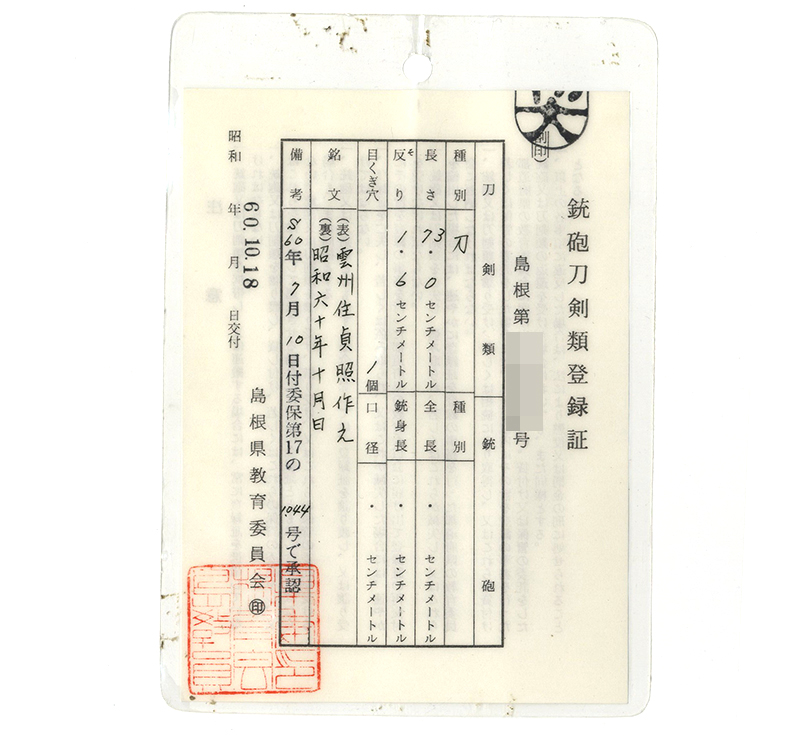 銃砲刀剣類登録証
割印
島根第 号
刀剣類 銃砲
種別 刀 種別
長さ 73・0 センチメートル 全長 ・ センチメートル
反り 1・6 センチメートル 銃身長 ・ センチメートル
目くぎ穴 1個 口径 ・ センチメートル
銘文 (表)雲州住貞照作之
(裏)昭和六十年十月日
備考 S60年7月10日付委保第17の1044号で承認
昭和 年 月 日交付
60.10.18
島根県教育委員会 印